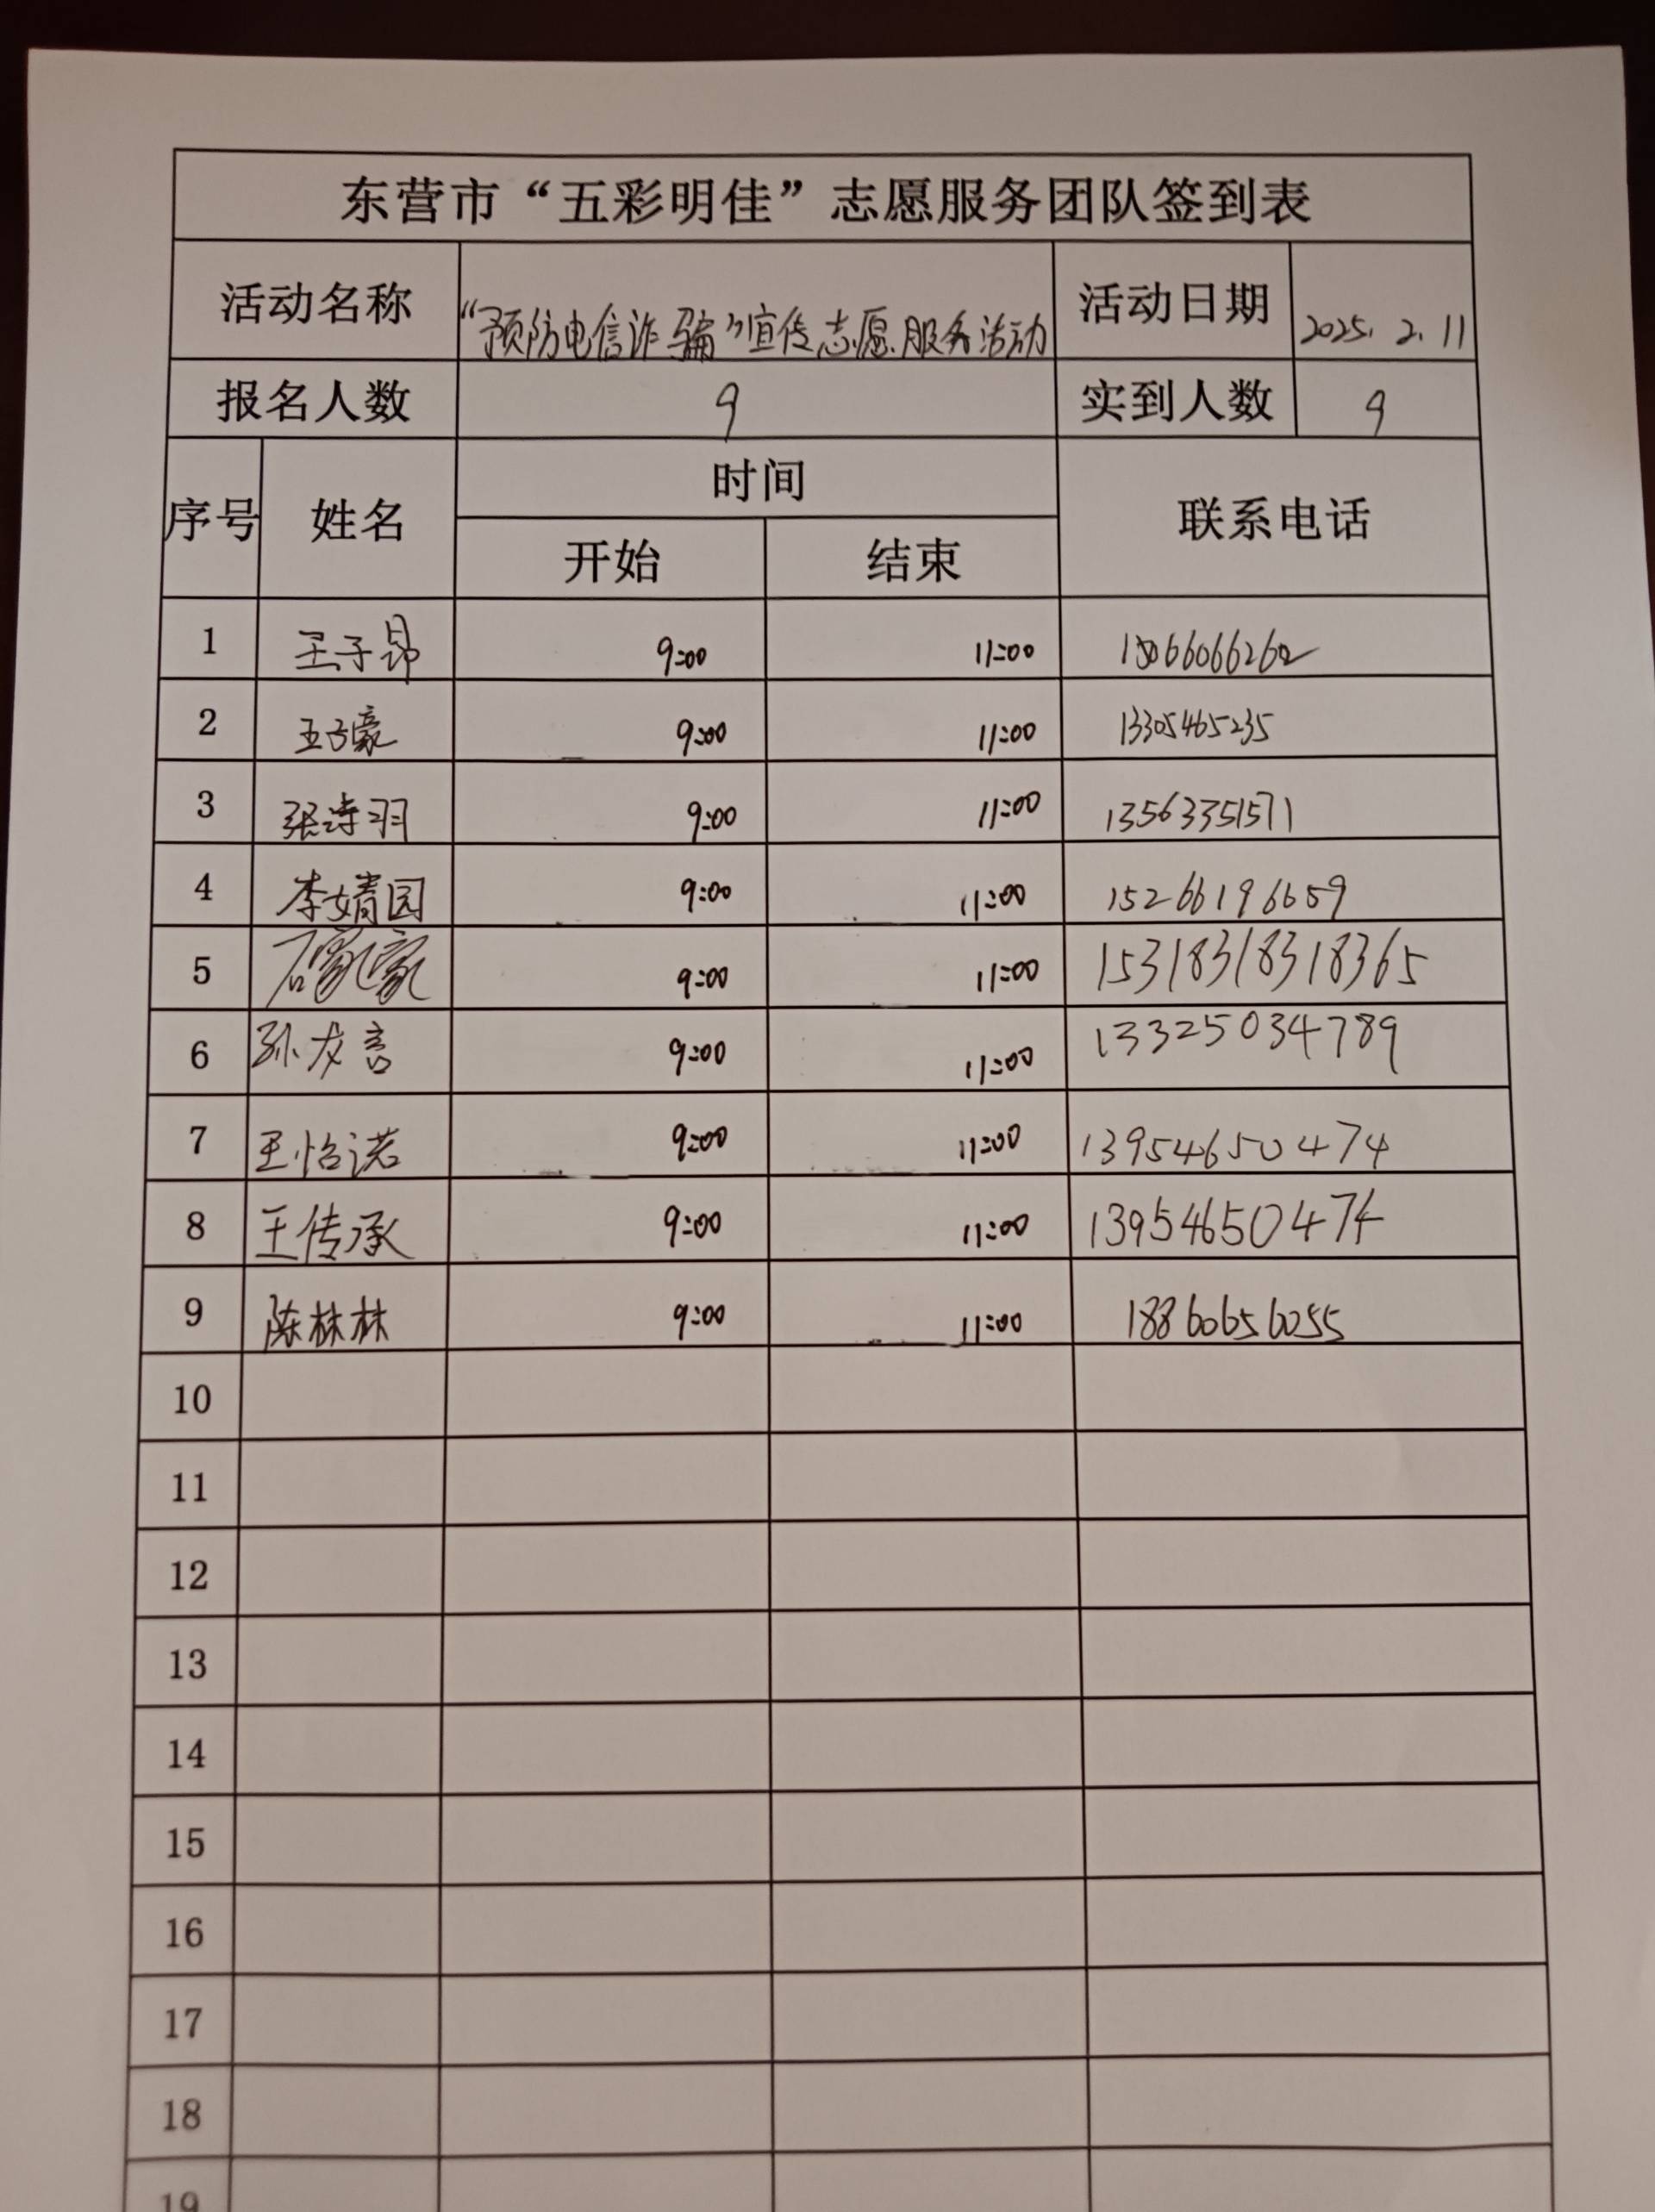 东营市“五彩明佳”志愿服务团队签到表
活动名称 “预防电信诈骗”宣传志愿服务活动 活动日期 2025.2.11
报名人数 9 实到人数 9
序号 姓名 时间 联系电话
开始 结束
1 王子昂 9:00 11:00
2 王子豪 9:00 11:00 13305465235
3 张诗羽 9:00 11:00 13563351571
4 李婧园 9:00 11:00 15266196659
5 石家豪 9:00 11:00 15318318318365
6 孙友言 9:00 11:00 13325034789
7 王怡诺 9:00 11:00 13954650474
8 王传承 9:00 11:00 13954650474
9 陈林林 9:00 11:00 18860656055
10
11
12
13
14
15
16
17
18
19